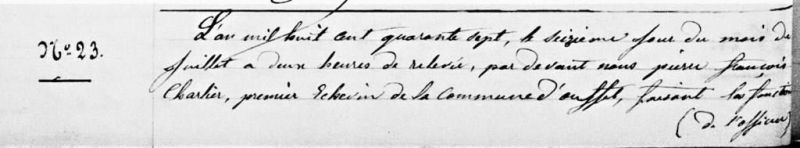 N.º 23.
L'an mil huit cent quarante sept, le seizieme jour du mois de
Juillet a deux heures de relevée, par devant nous pierre françois
Charlier, premier Echevin de la Commune d'ouffet, faisant les fonctions
(de l'officier)